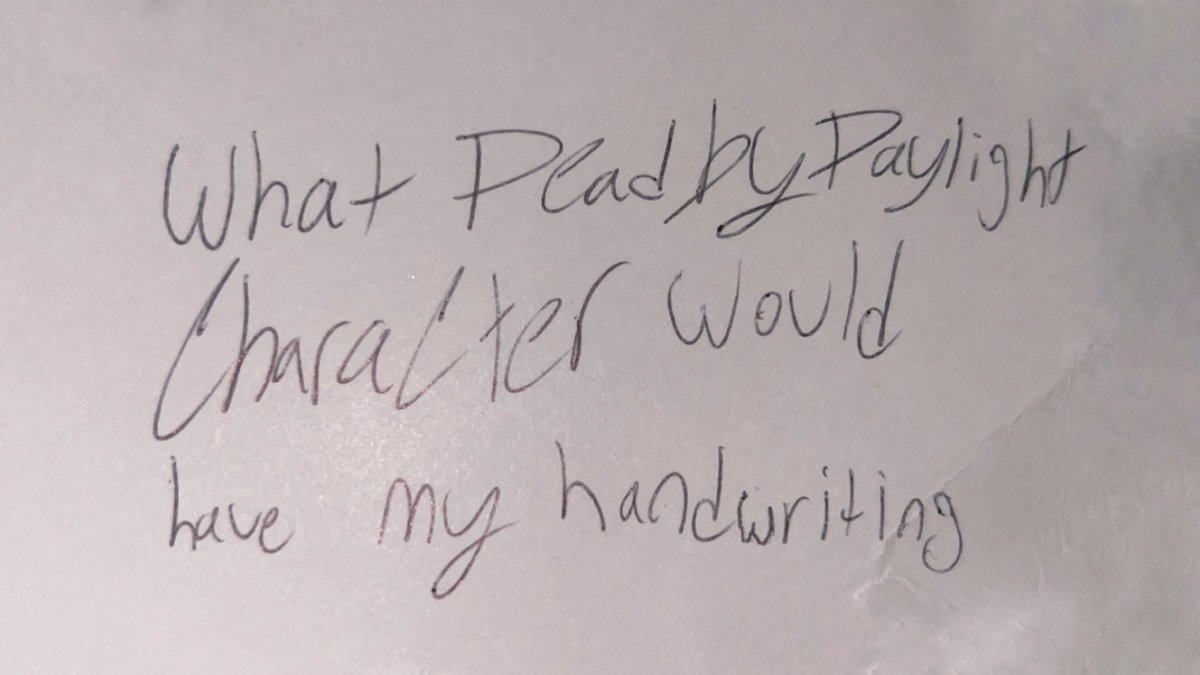 What Dead by Daylight
Character would
have my handwriting